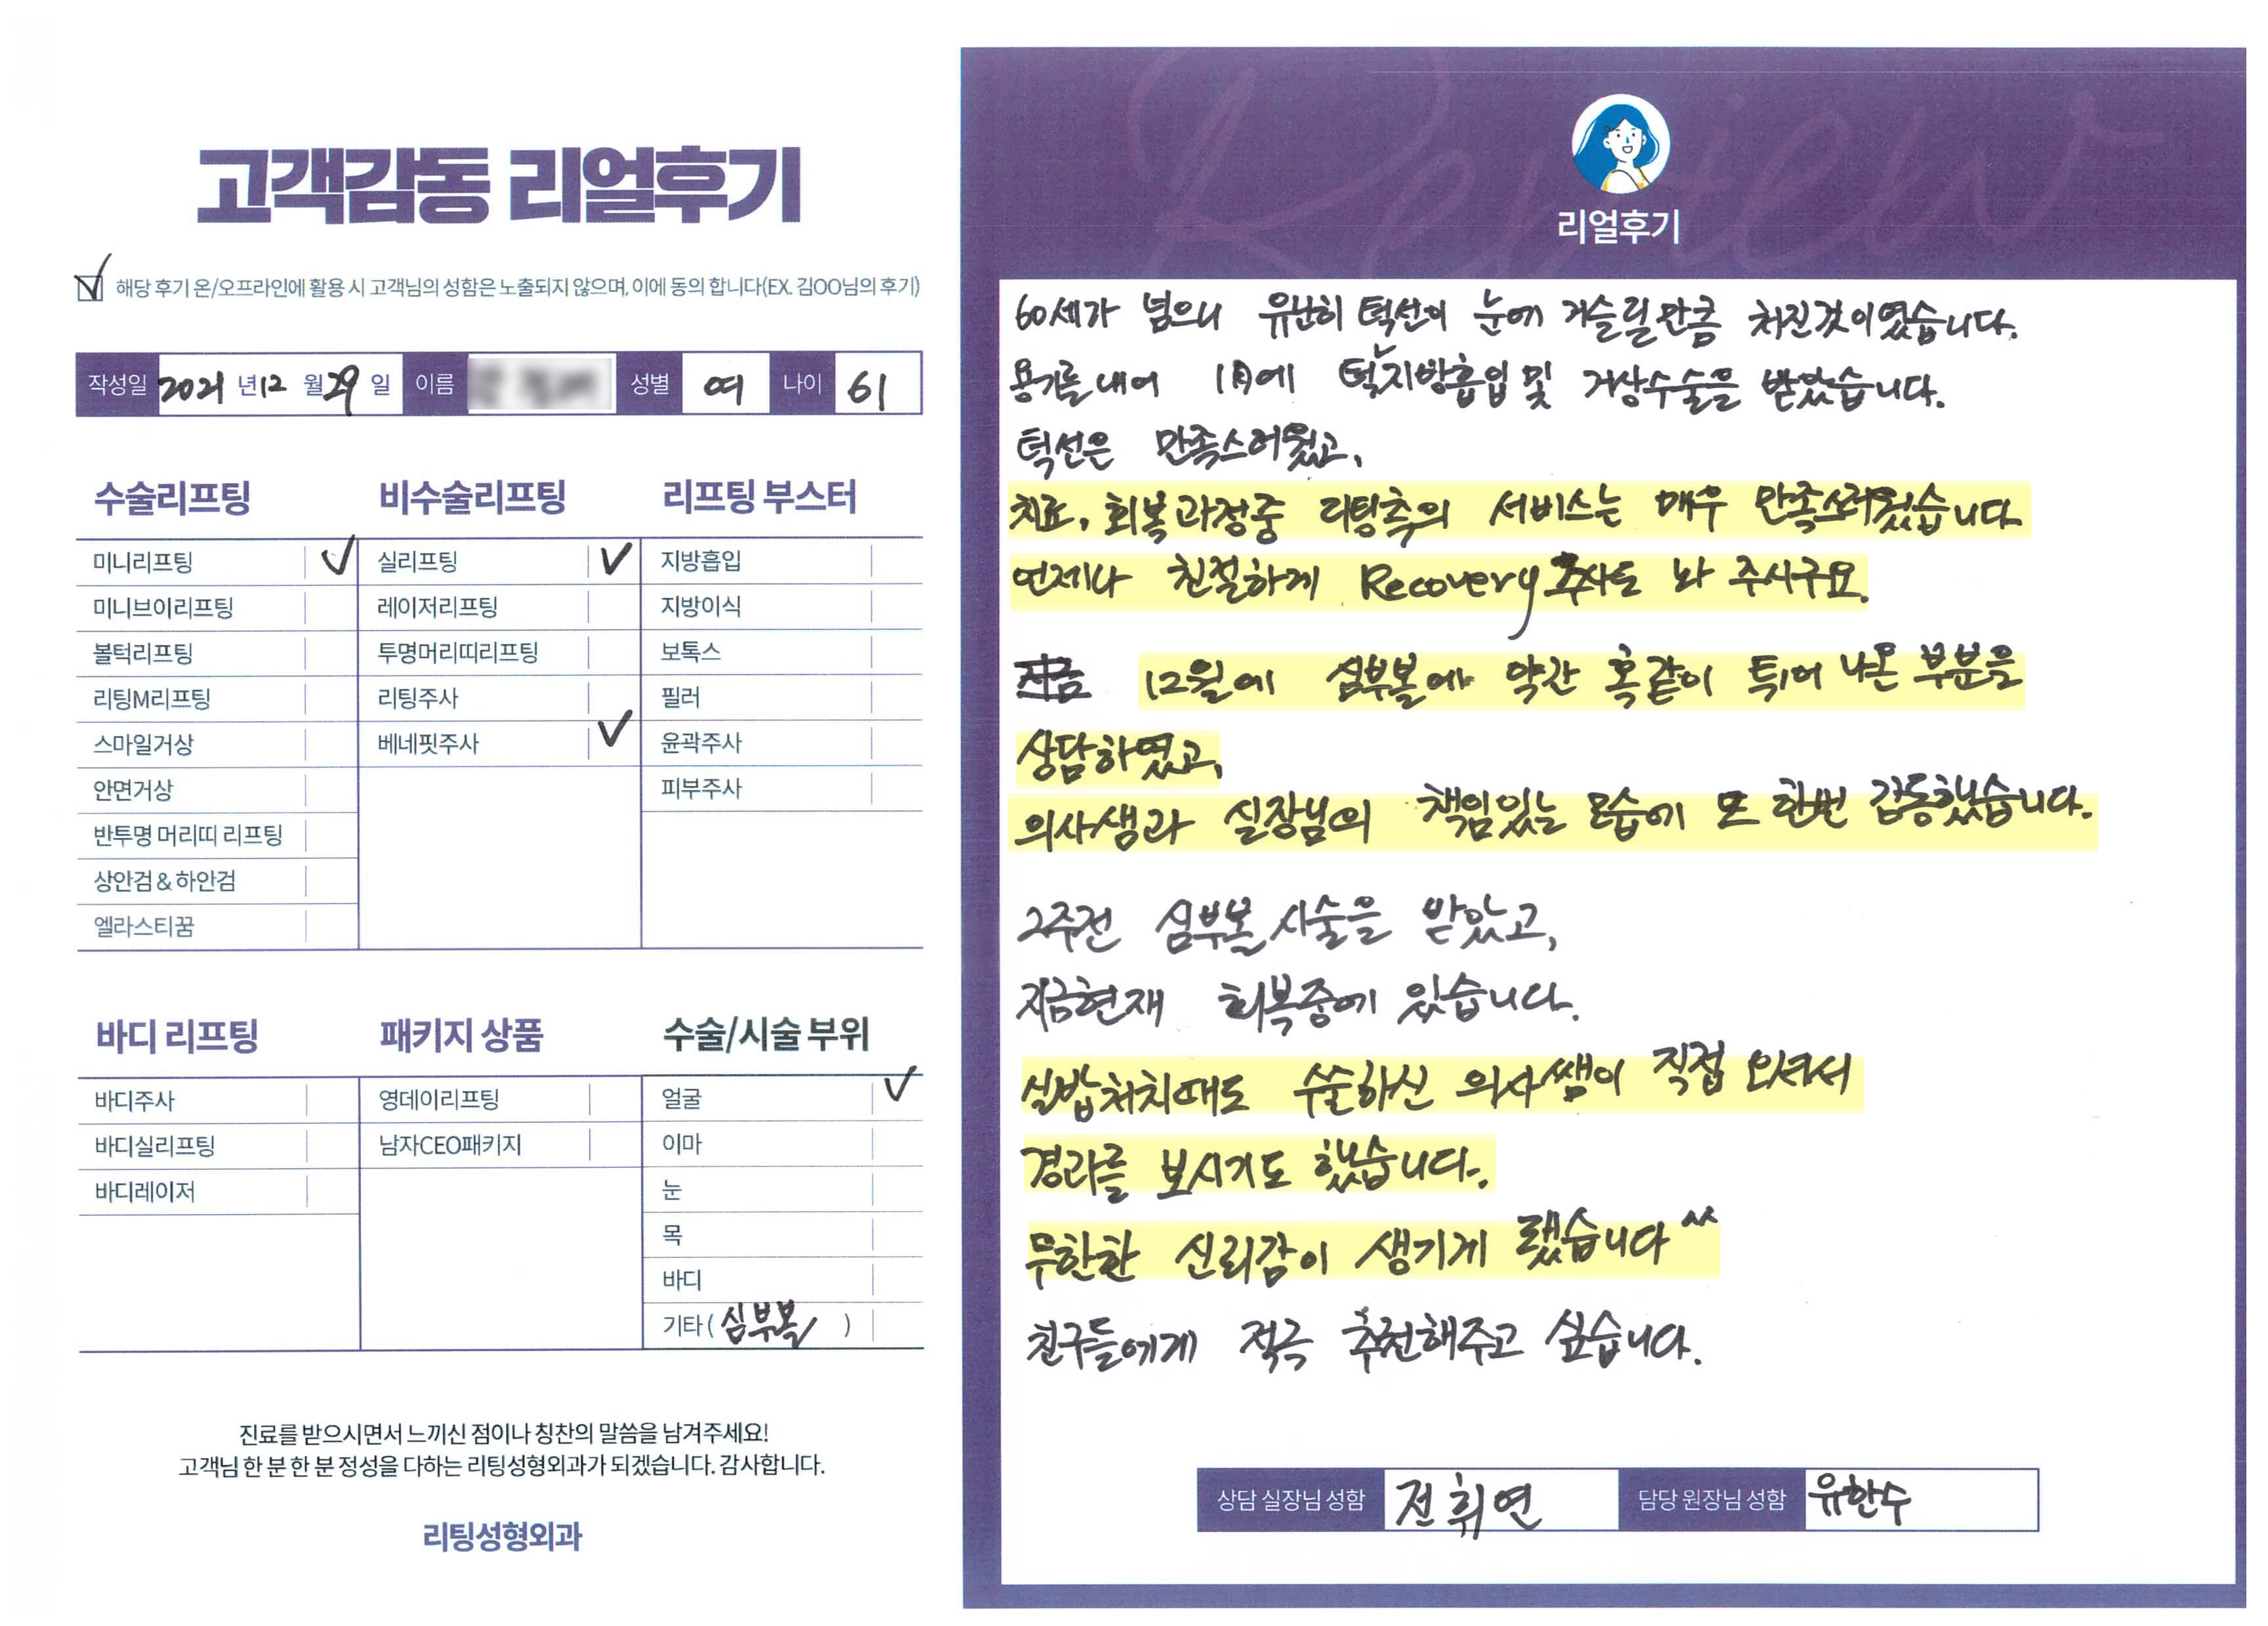 고객감동 리얼후기
해당 후기 온/오프라인에 활용 시 고객님의 성함은 노출되지 않으며, 이에 동의 합니다(EX. 김OO님의 후기)
작성일 2021 년 12 월 29 일 이름 성별 여 나이 61
수술리프팅
미니리프팅 ✓
미니브이리프팅
볼턱리프팅
리팅M리프팅
스마일거상
안면거상
반투명 머리띠 리프팅
상안검 & 하안검
엘라스티꿈
비수술리프팅
실리프팅 ✓
레이저리프팅
투명머리띠리프팅
리팅주사
베네핏주사 ✓
리프팅 부스터
지방흡입
지방이식
보톡스
필러
윤곽주사
피부주사
바디 리프팅
바디주사
바디실리프팅
바디레이저
패키지 상품
영데이리프팅
남자CEO패키지
수술/시술 부위
얼굴 ✓
이마
눈
목
바디
기타 ( 심부볼 )
진료를 받으시면서 느끼신 점이나 칭찬의 말씀을 남겨주세요!
고객님 한 분 한 분 정성을 다하는 리팅성형외과가 되겠습니다. 감사합니다.
리팅성형외과
Review
리얼후기
60세가 넘으니 유난히 턱선이 눈에 거슬릴만큼 처진것이였습니다.
용기를 내어 1月에 턱지방흡입 및 거상수술을 받았습니다.
턱선은 만족스러웠고,
치료, 회복과정중 리팅측의 서비스는 매우 만족스러웠습니다
언제나 친절하게 Recovery 주사도 놔 주시구요.
12월에 심부볼에 약간 혹같이 튀어 나온 부분을
상담하였고,
의사샘과 실장님의 책임있는 모습에 또 한번 감동했습니다.
2주전 심부볼 시술을 받았고,
지금현재 회복중에 있습니다.
실밥처치때도 수술하신 의사쌤이 직접 오셔서
경과를 보시기도 했습니다.
무한한 신뢰감이 생기게 됐습니다^^
친구들에게 적극 추천해주고 싶습니다.
상담 실장님 성함 전휘연 담당 원장님 성함 유한수